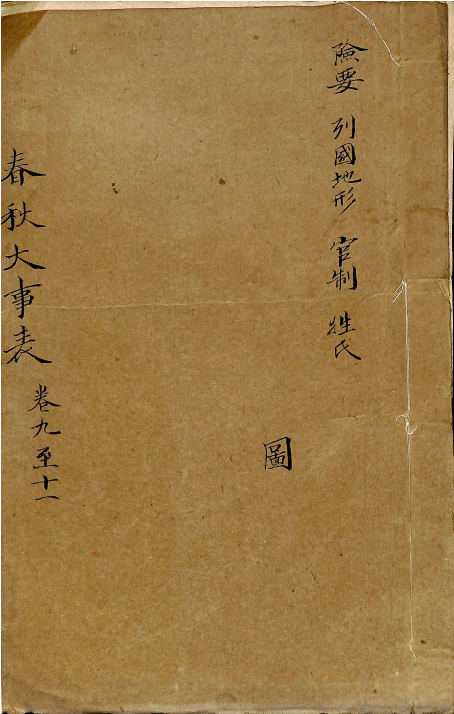 險要 列國地形 官制 姓氏
圖
春秋大事表
卷九至十一